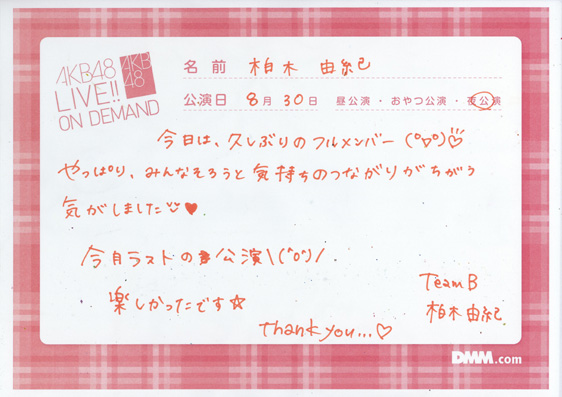 AKB48
LIVE!!
ON DEMAND
AKB
48
名前 柏木 由紀
公演日 8月30日 昼公演・おやつ公演・夜公演
今日は、久しぶりのフルメンバー(°▽°)♡
やっぱり、みんなそろうと気持ちのつながりがちがう
気がしました♥
今月ラストの公演\(°o°)/
楽しかったです☆
Thank you...♡
Team B
柏木由紀
DMM.com